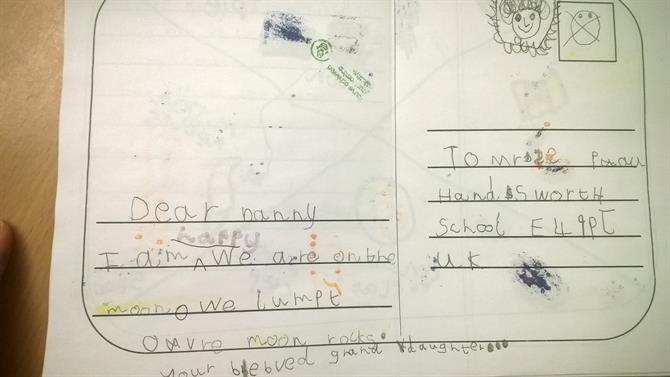 Dear nanny
happy
I aim We are on the
moon We lumpt
Ovvro moon rocks.
Your blebved grand daughter
To mrs
Handsworth
School E4 9PL
UK